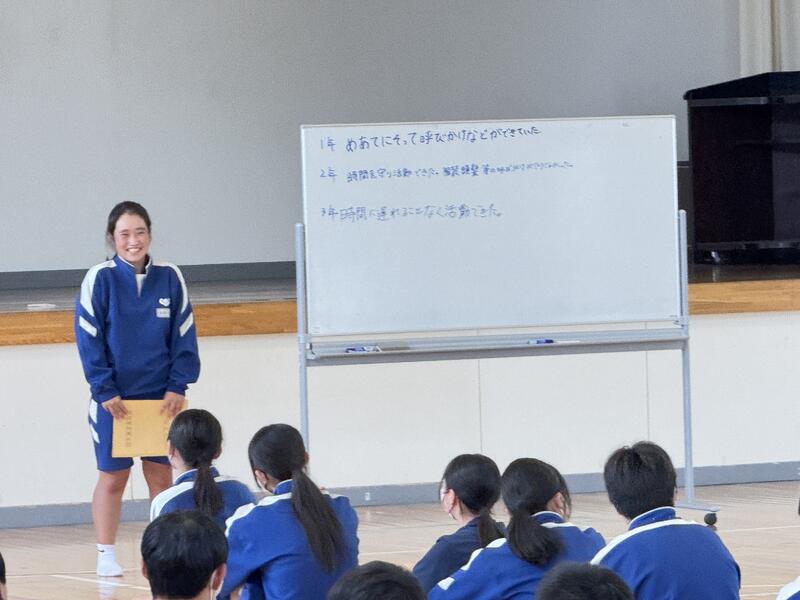 1年 めあてにそって呼びかけなどができていた
2年 時間を守り活動できた。服装頭髪 等の呼びかけができていました。
3年 時間に遅れることなく活動できた。